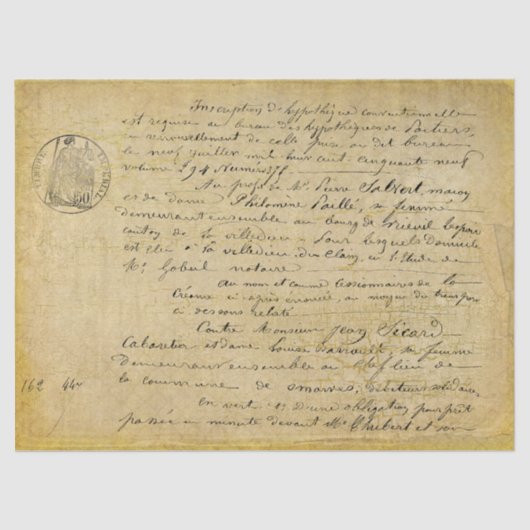 Inscription d'hypothèque conventionnelle
est requise au bureau des hypothèques de Poitiers,
en renouvellement de celle prise au dit bureau
le neuf juillet mil huit cent cinquante neuf
volume 294 Numéro 375.
Au profit de Mr. Pierre Salvert, maçon
et de dame Philomène Paillé, sa femme
demeurant ensemble au bourg de Nieuil
canton de la villedieu. Pour lesquels Domicile
est élu à la villedieu du Clain, en l'Etude de
Me. notaire
Au nom et comme cessionnaires de la
Créance ci-après énoncée, au moyen du transport
ci dessous relaté.
Contre Monsieur Jean Sicard
Cabaretier et dame Louise sa femme
Demeurant ensemble au chef lieu de
la commune de débiteurs solidaires
En vertu 1o D'une obligation pour prêt
passée en minute devant Me. et son
162 44
50